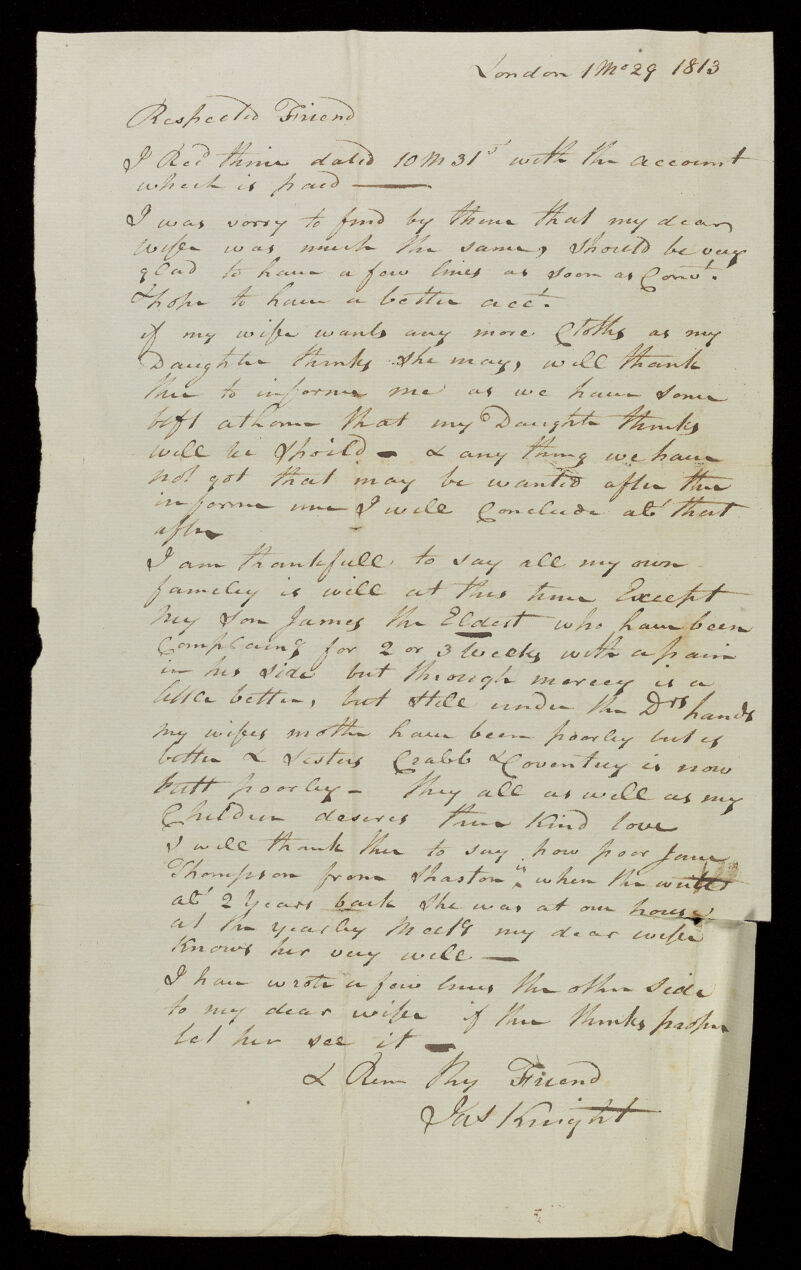 London 1 Mo 29 1813
Respected Friend
I Recd thine dated 10 M 31st with the account
which is paid —
I was sorry to find by thine that my dear
wife was much the same, should be very
glad to have a few lines as soon as Convt.
& hope to have a better acct.
if my wife wants any more Cloths as my
Daughter thinks she may, will thank
thee to informe me as we have some
left athome that my Daughter thinks
will be Spoild — & any thing we have
not got that may be wanted after thee
informe me I will Conclude abt that
after
I am thankfull to say all my own
fameley is well at this time Except
my Son James the Eldest who have been
Complaing for 2 or 3 Weeks with a pain
in his side but through mercey is a
little better, but still under the Drs hands
my wifes mother have been poorley but is
better & Sisters Crabb & Coventrey is now
poorley — they all as well as my
Children desires their Kind love
I will thank thee to say how poor Jane
Thompson from Shaston is, when thee writes
abt 2 Years back she was at our house
at the yearley Meetg my dear wife
Knows her very well —
I have wrote a few lines the other side
to my dear wife if thee thinks proper
let her see it —
& Rem Thy Friend
Jas Knight